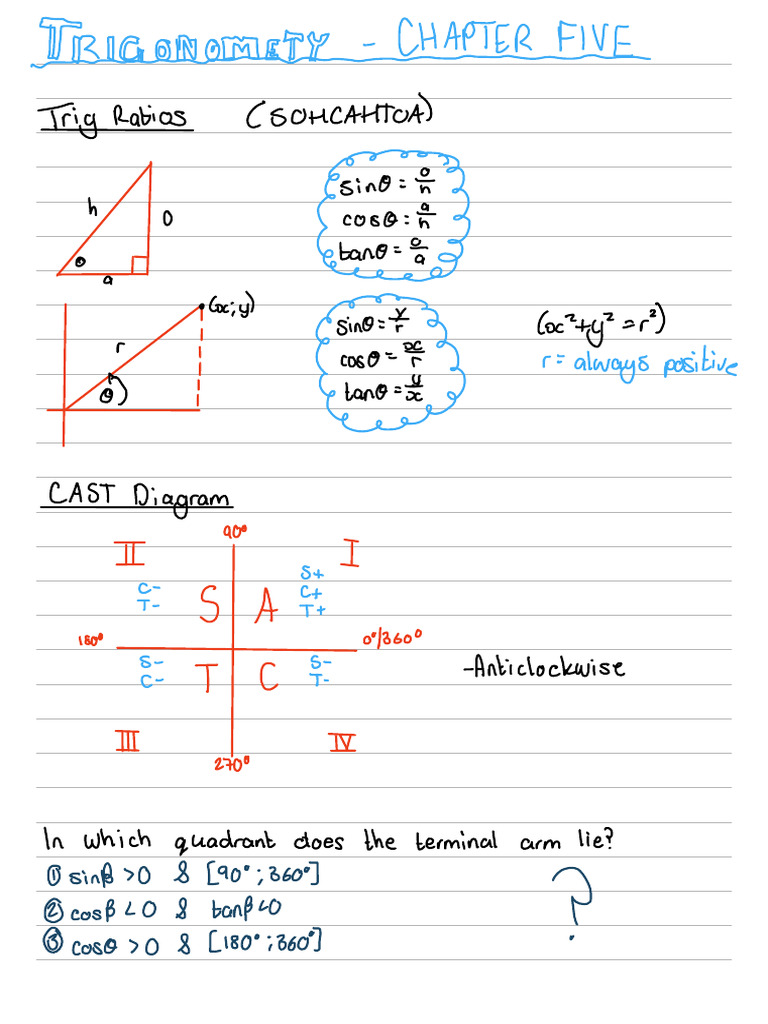 TRIGONOMETY - CHAPTER FIVE
Trig Ratios (SOHCAHTOA)
h
O
θ
a
sinθ = o/h
cosθ = a/h
tanθ = o/a
(x;y)
r
θ
sinθ = y/r
cosθ = x/r
tanθ = y/x
(x²+y²=r²)
r = always positive
CAST Diagram
90°
II I
C-
T-
S A
S+
C+
T+
180° 0°/360°
S-
C-
T C
S-
T-
-Anticlockwise
III IV
270°
In which quadrant does the terminal arm lie?
① sinβ >0 & [90°;360°]
② cosβ <0 & tanβ<0
③ cosθ >0 & [180°;360°]
?